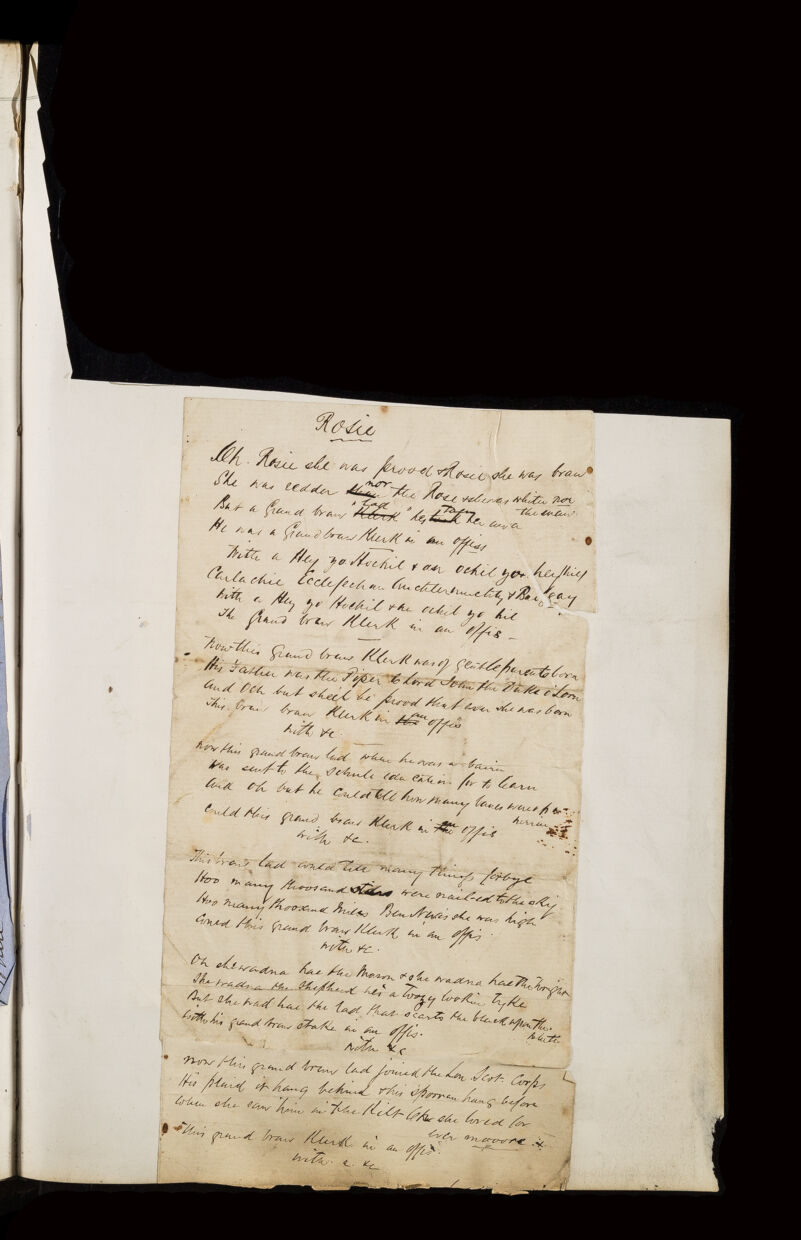 Rosie
Oh. Rosie she was prood & Rosie she was braw
She was redder nor the Rose & she was whiter nor
the snaw
But a Grand braw "Lad" has taen her awa
He was a Grand braw Klerk in an offis
With a Hey yo Hochil & an ochil yo
Carlachie Ecclefechan Auchtermuchty &
With a Hey yo Hochil & an ochil yo hil
The Grand braw Klerk in an offis
Now this Grand braw Klerk was of gentle parents born
His Father was the Piper to Lord John the Duke o Lorn
And Och but she'll be prood that ever she was born
This braw braw Klerk in an offis
with &c
Now this grand braw lad when he was a bairn
Was sent to the schule education for to learn
And Oh but he could tell how many tares were
Could this grand braw Klerk in an offis
with &c.
This braw lad could tell many things forbye
Hoo many thoosand stars were nailed to the sky
Hoo many thoosand miles Ben Nevis she was high
Could this grand braw Klerk in an offis
with &c.
Oh she wadna hae the Mason & she wadna hae the Wright
She wadna the Shepherd he's a toozy lookin tyke
But she wad hae the lad that scarts the black upon the
white
with &c
Now this grand braw lad joined the Lon Scot. Corps
His plaid it hang behind & his sporran hang before
When she saw him in the Kilt she loved for
ever mooore
This grand braw Klerk in an offis.
with &c